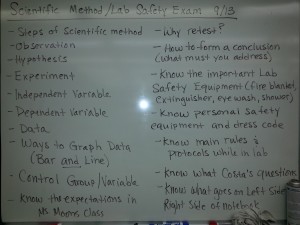 Scientific Method/Lab Safety Exam 9/13
- Steps of Scientific method
- Observation
- Hypothesis
- Experiment
- Independent Variable
- Dependent Variable
- Data
- Ways to Graph Data
(Bar and Line)
- Control Group/Variable
- Know the expectations in
Ms Moems Class
- Why retest?
- How to form a conclusion
(what must you address)
- Know the important Lab
Safety Equipment (fire blanket,
extinguisher, eye wash, shower)
- Know personal safety
equipment and dress code
- Know main rules &
protocols while in lab
- Know what Costa's question
- Know what goes on Left Side
Right Side of Notebook